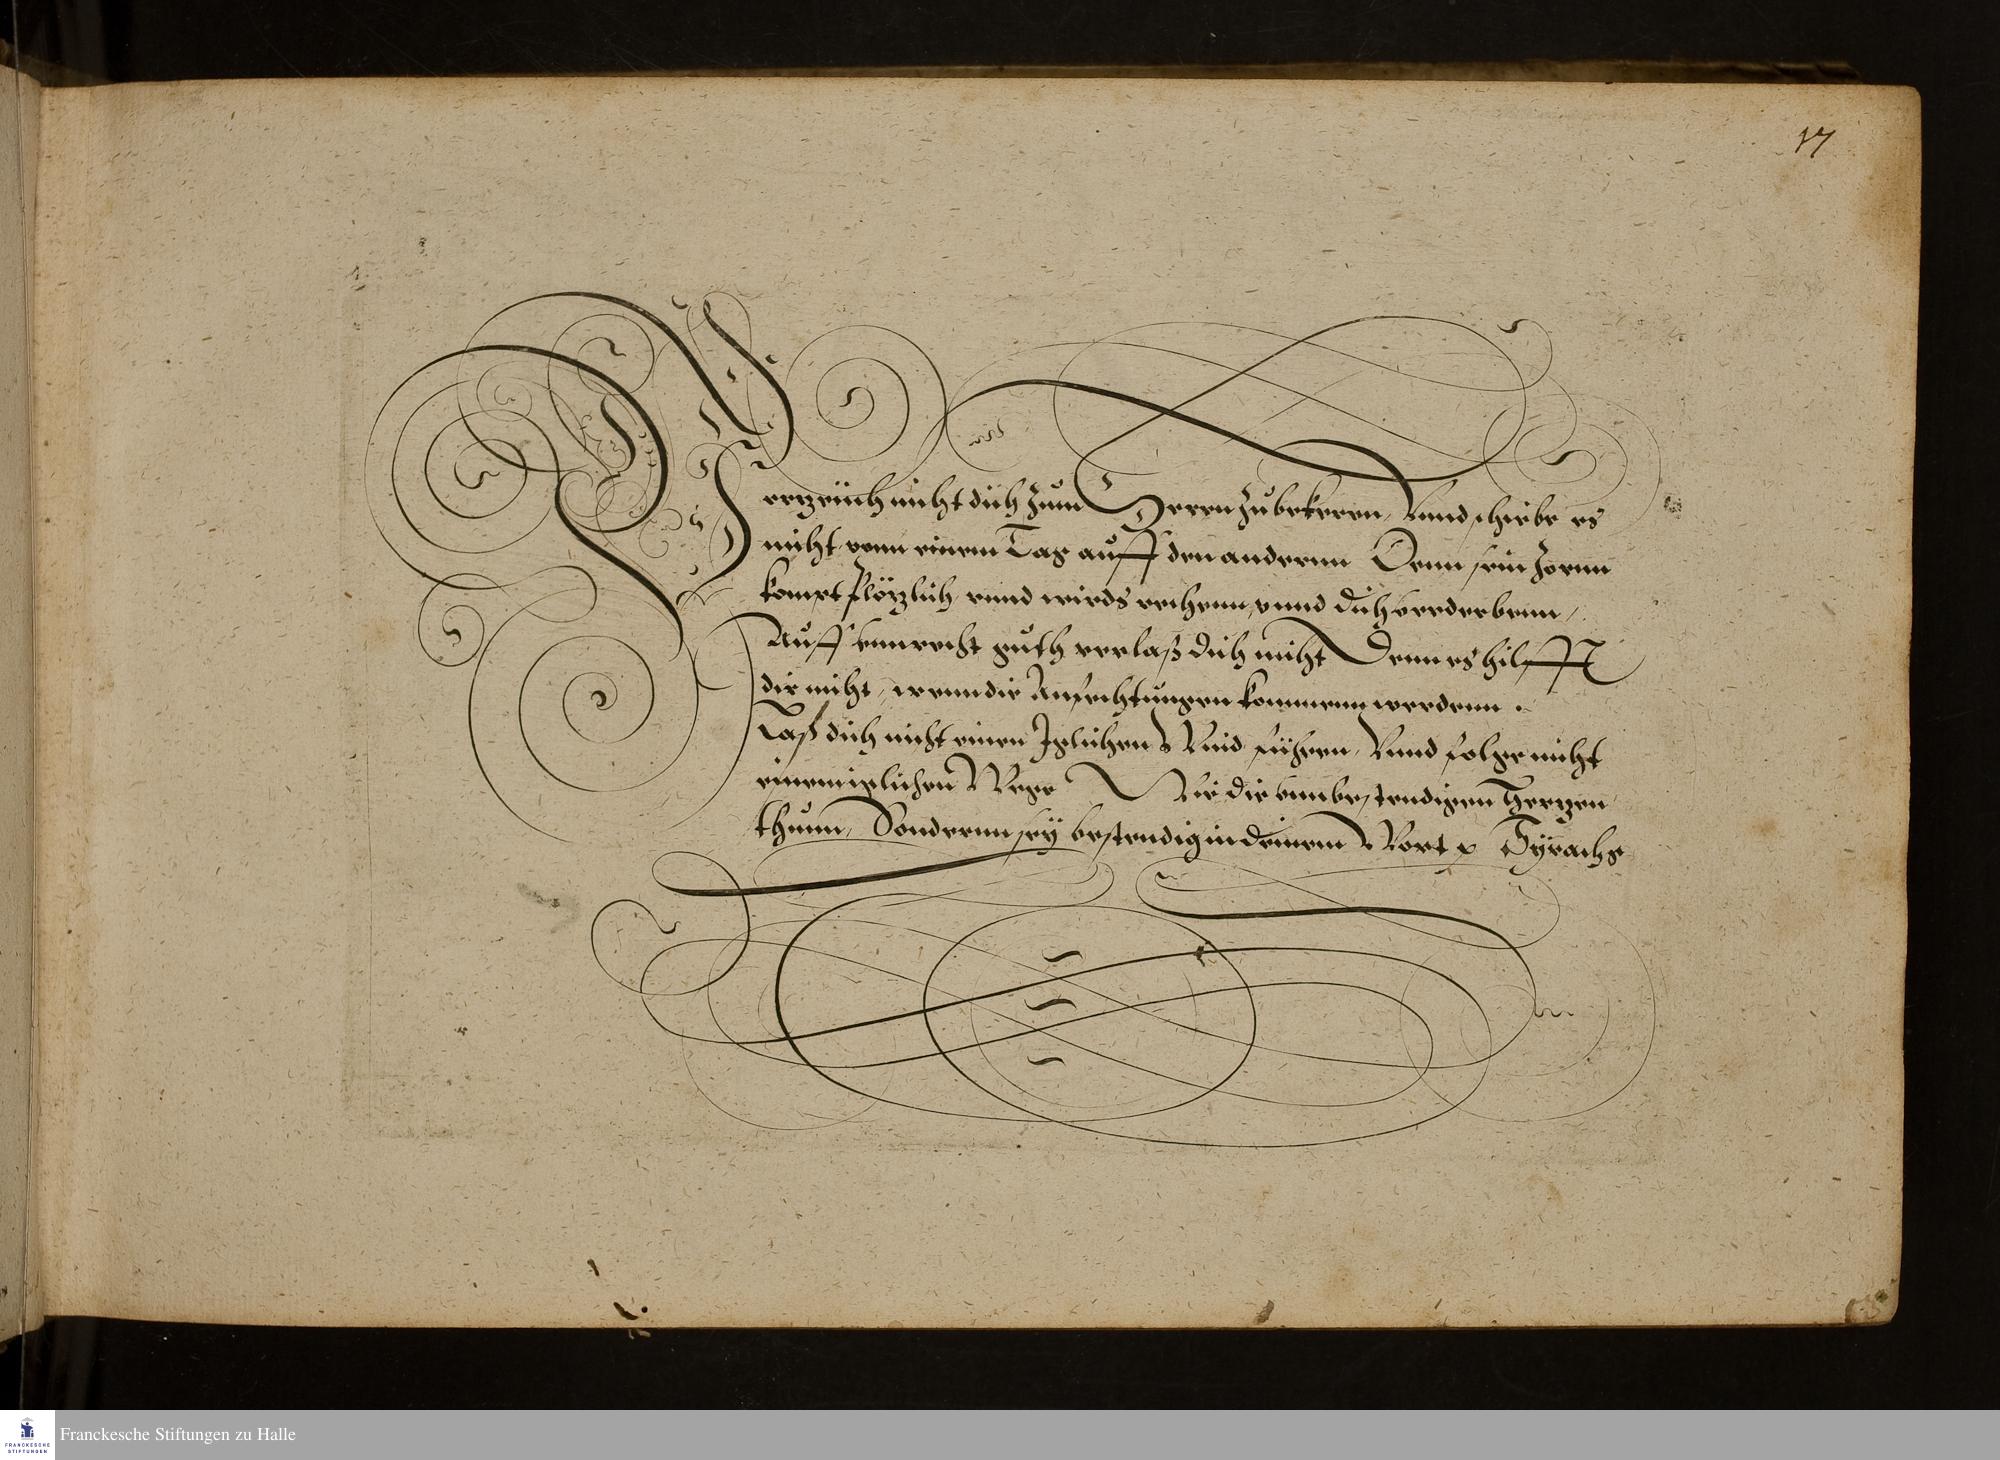 17
Verzeüch nicht dich Zum Herren Zubekeren, Vnnd schiebe es
nicht vonn einem Tag auff den andernn Denn sein Zornn
kompt plötzlich vnnd wirds rechenn, vnnd dich verderbenn,
Auff vnnrecht guth verlaß dich nicht Denn es hilfft
dir nicht, wenn die Anfechtungen kommenn werdenn.
Laß dich nicht einen Iglichen Wind führen, Vnnd folge nicht
einem iglichen Wege Wie die vnnbestendigen Hertzen
thunn, Sondernn seÿ bestendig in deinem Wort Sÿrachs
Franckesche Stiftungen zu Halle
FRANCKESCHE
STIFTUNGEN